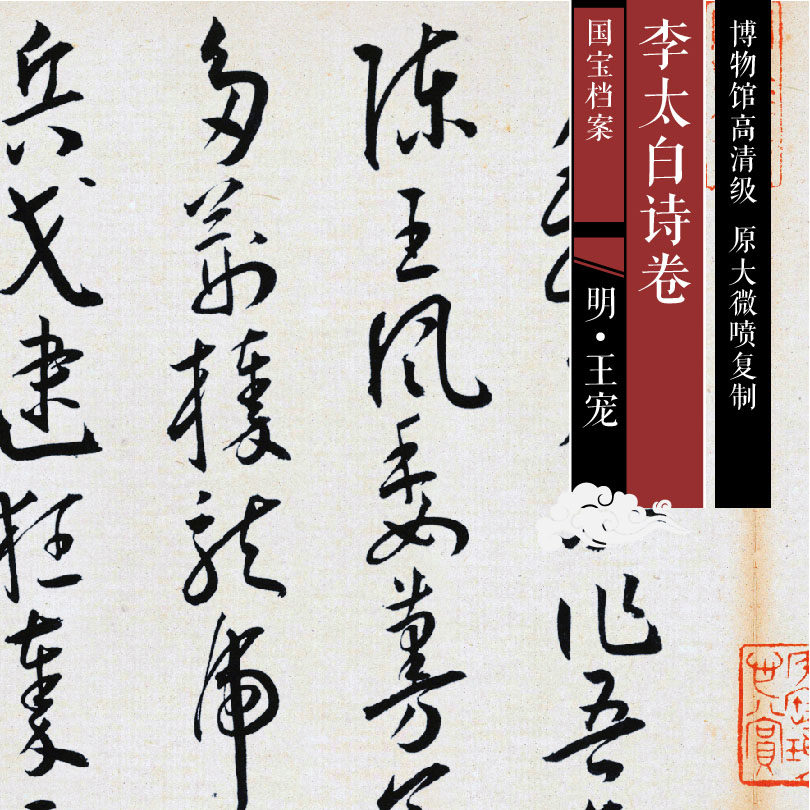 博物馆高清级 原大微喷复制
李太白诗卷
国宝档案
明·王宠
作吾
陳王風委蔓
多荊榛龍虎
兵戈逮狂秦